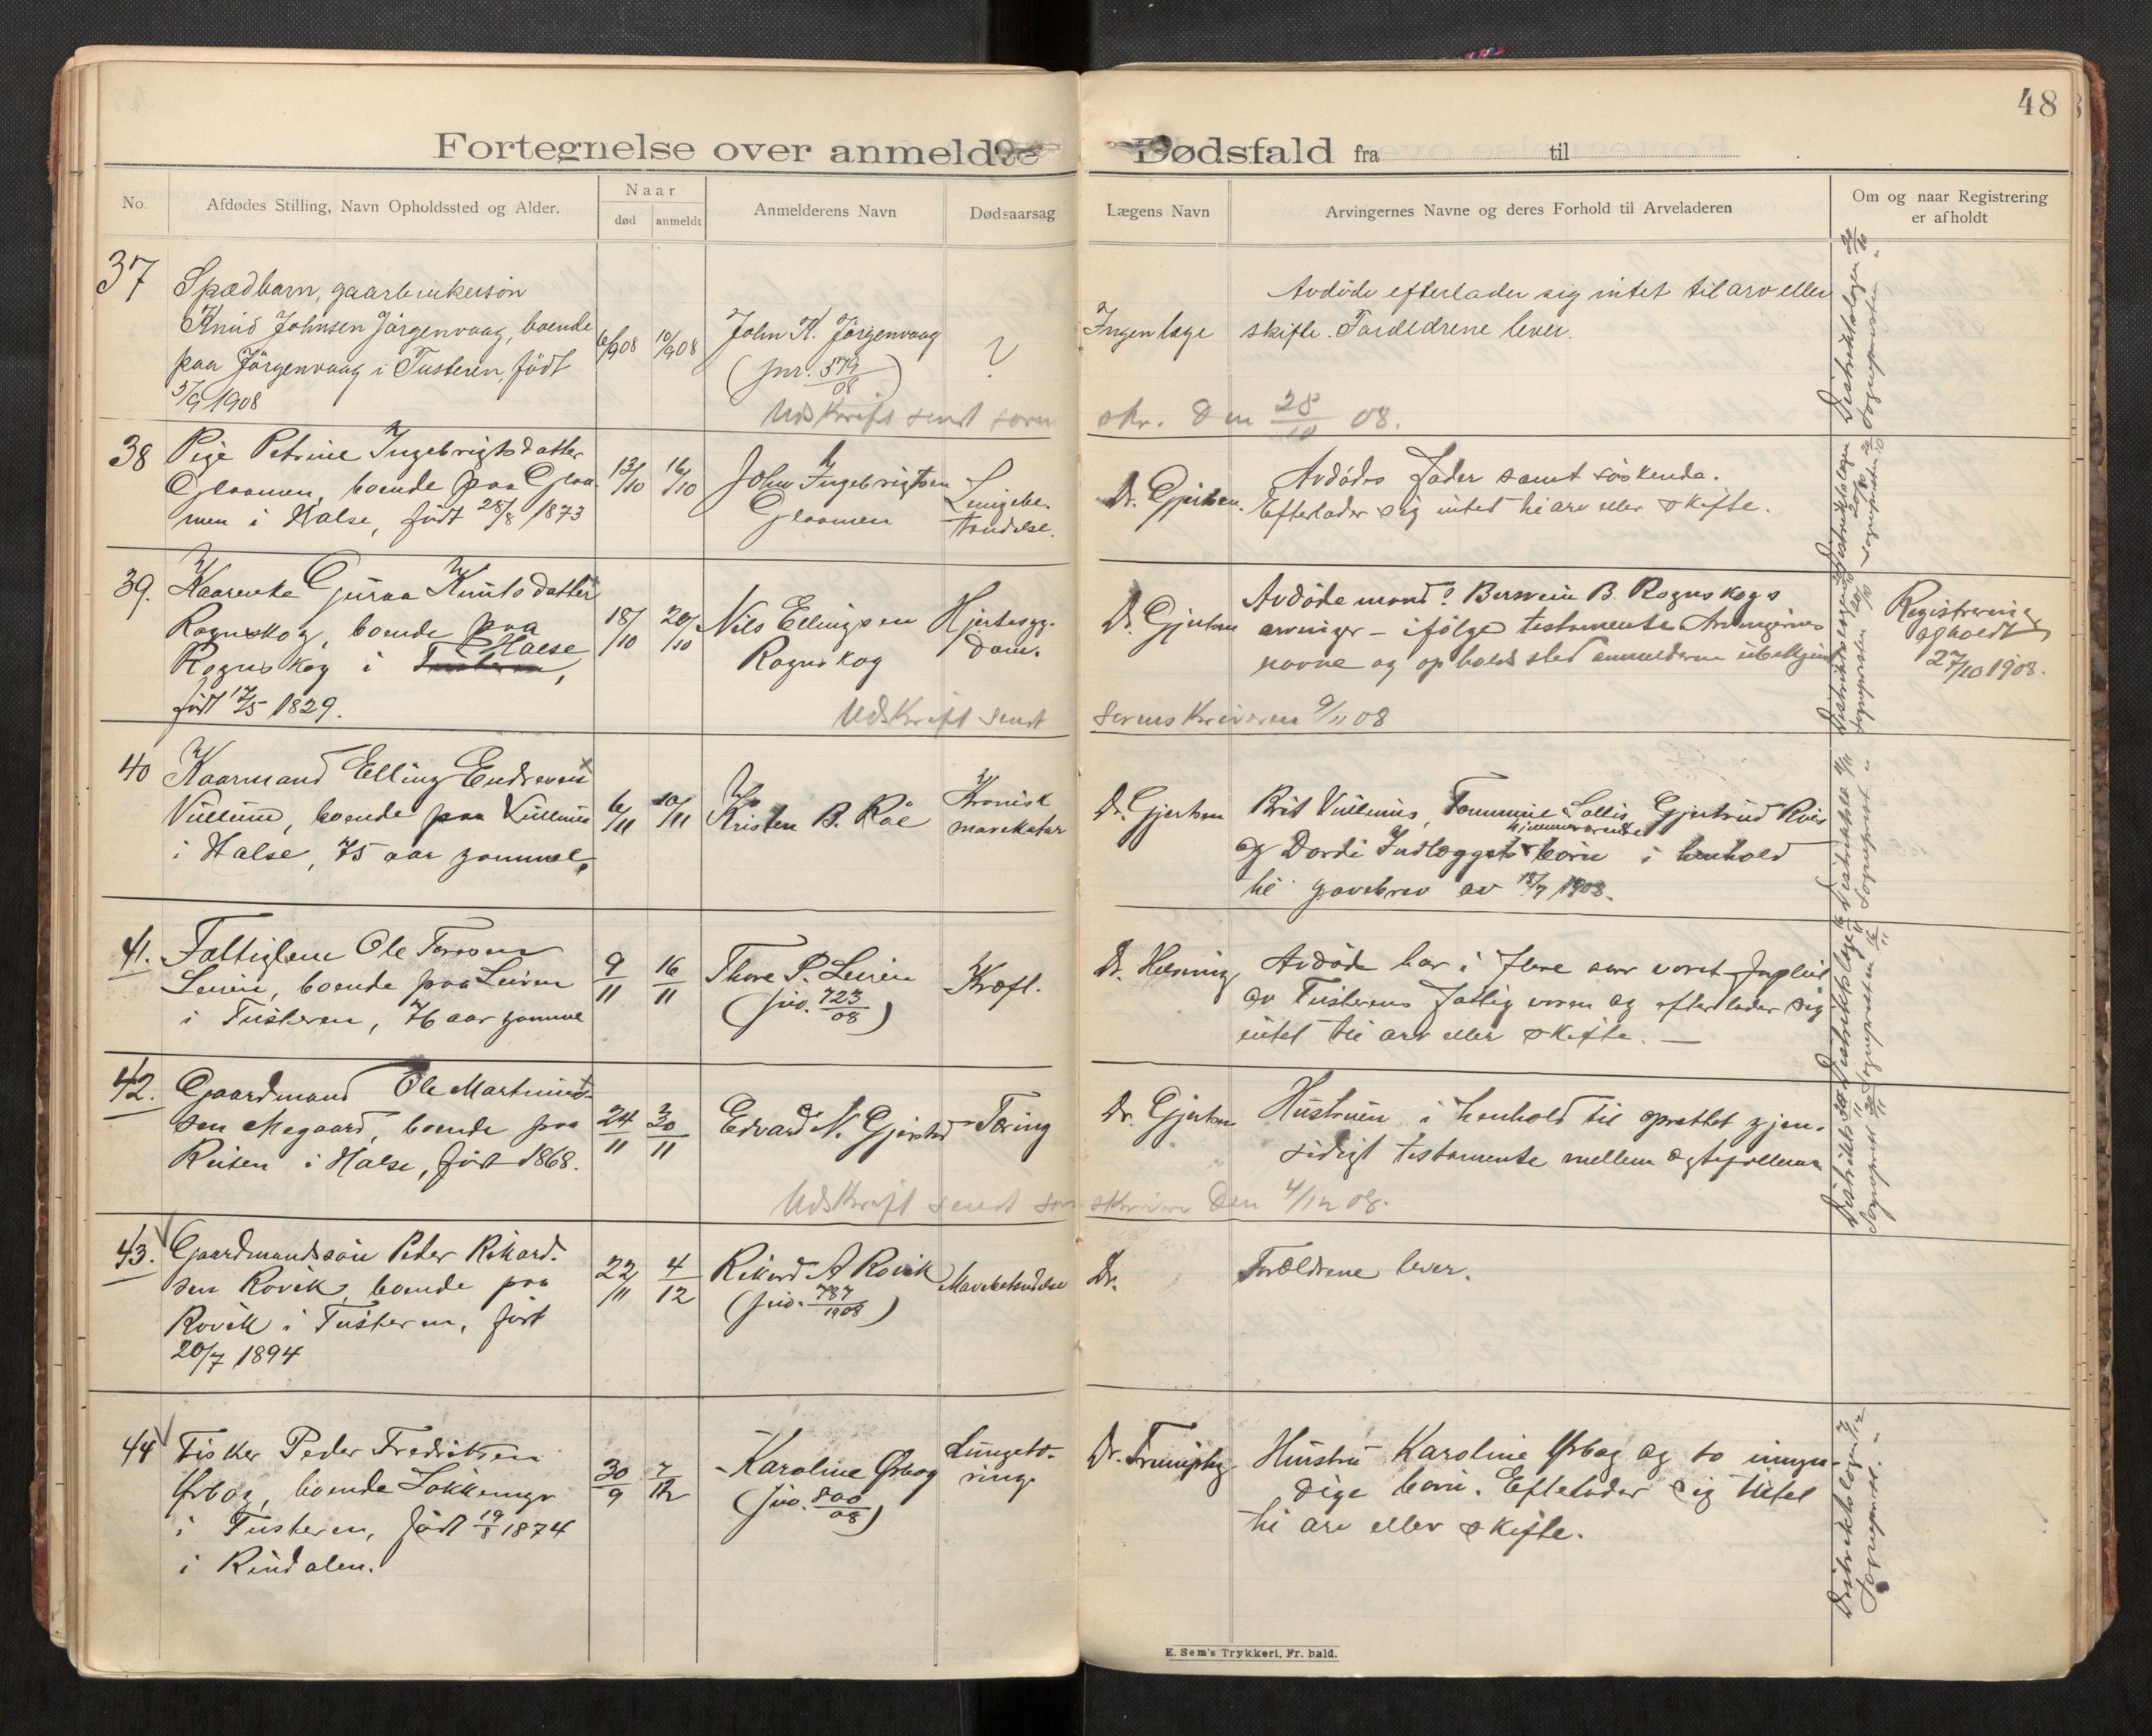 48
Fortegnelse over anmeldte Dødsfald fra til
No.
Afdødes Stilling, Navn Opholdssted og Alder.
Naar
død
anmeldt
Anmelderens Navn
Dødsaarsag
Lægens Navn
Arvingernes Navne og deres Forhold til Arveladeren
Om og naar Registrering
er afholdt
37
Spædbarn, gaarbrukersön
Knud Johnsen Jörgenvaag, boende
paa Jörgenvaag i Tusteren, födt
5/9 1908
6/9 08
10/9 08
John K. Jörgenvaag
(jnr. 579/08)
?
Ingen læge
Avdöde efterlader sig intet til arv eller
skifte. Forældrene lever.
Udskrift sendt soren
skr. den 28/10 08.
38
Pige Petrine Ingebrigtsdatter
Glaamen, boende paa Glaa-
men i Halse, födt 28/8 1873
13/10
16/10
John Ingebrigtsen
Glaamen
Lungebe-
tændelse.
Dr. Gjertsen.
Avdödes fader samt söskende.
Efterlader sig intet til arv eller skifte.
39.
Kaarenke Guraa Knutsdatter
Rognskog, boende paa
Rognskog i Halse,
födt 17/5 1829.
18/10
20/10
Nils Ellingsen
Rognskog
Hjertesyg-
dom.
Dr. Gjertsen
Avdöde mand? Bersvein B. Rognskogs
arvinger - ifölge testamente. Arvingernes
navne og opholdssted anmelderen ubekjent
Registrering
afholdt
27/10 1908.
Udskrift sendt
sorenskriveren 9/11 08
40
Kaarmand Elling Endresen
Vullum, boende paa Vullum
i Halse, 75 aar gammel.
6/11
10/11
Kristen B. Röe
Kronisk
mavekatar
Dr. Gjertsen
Brit Vullums, Gjertrud
og Dordi hjemmeværende börn i henhold
til gavebrev av 18/7 1908.
41.
Fattiglem Ole Toresen
Leiren, boende paa Leiren
i Tusteren, 76 aar gammel
9/11
16/11
Thore P. Leiren
(jno. 723/08)
Kræft.
Dr.
Avdöde har i flere aar været forpleiet
av Tusterens fattigvæsen og efterlader sig
intet til arv eller skifte. —
42.
Gaardmand Ole Martinus-
sen Megaard, boende paa
Reiten i Halse, födt 1868.
24/11
30/11
Edvard N. Gjerstad
Tæring
Dr. Gjertsen
Hustruen i henhold til oprettet gjen-
sidigt testamente mellem ægtefollerne
Udskrift sendt soren
skriveren den 4/12 08.
43.
Gaardmandssön Peder Rikard-
sen Rovik, boende paa
Rovik i Tusteren, födt
20/7 1894
22/11
4/12
Rikard A Rovik
(jno. 787/1908)
Mavebetændelse
Dr.
Forældrene lever.
44
Fisker Peder Fredriksen
Ørbog, boende
i Tusteren, födt 19/8 1874
i Rindalen.
30/9
7/12
Karoline Ørbog
(jno. 800/08)
Lungetæ-
ring
Dr.
Hustru Karoline Ørbog og to umyn-
dige börn. Efterlader sig intet
til arv eller skifte.
Distriktslægen 7/12
Sogneprest. "
E. Sem's Trykkeri, Fr. hald.